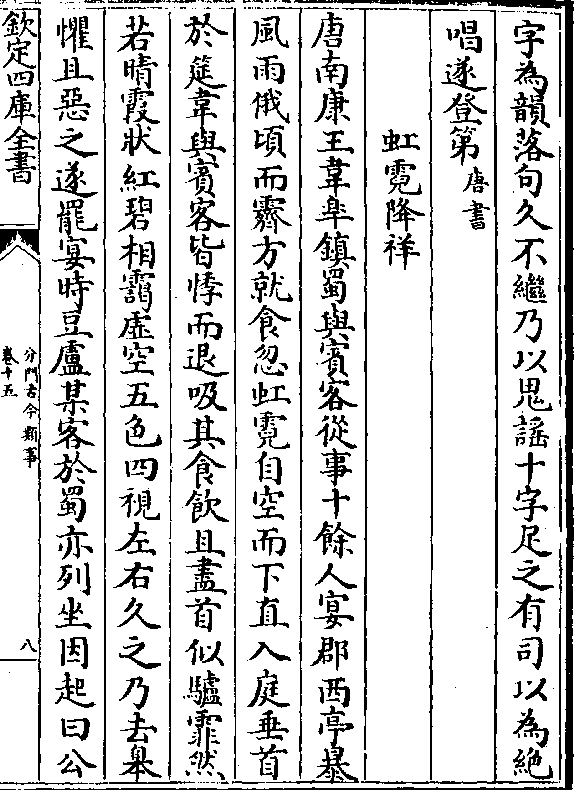 字為韻落句久不繼乃以鬼謡十字足之有司以為絶
唱遂登第唐書
虹霓降祥
唐南康王韋臯鎮蜀與賓客從事十餘人宴郡西亭暴
風雨俄頃而霽方就食忽虹霓自空而下直入庭垂首
於筵韋與賓客皆悸而退吸其食飲且盡首似驢霏然
若晴霞狀紅碧相靄虚空五色四視左右久之乃去臯
懼且惡之遂罷宴時豆盧某客於蜀亦列坐因起曰公
欽定四庫全書
分門古今類事
卷十五
八